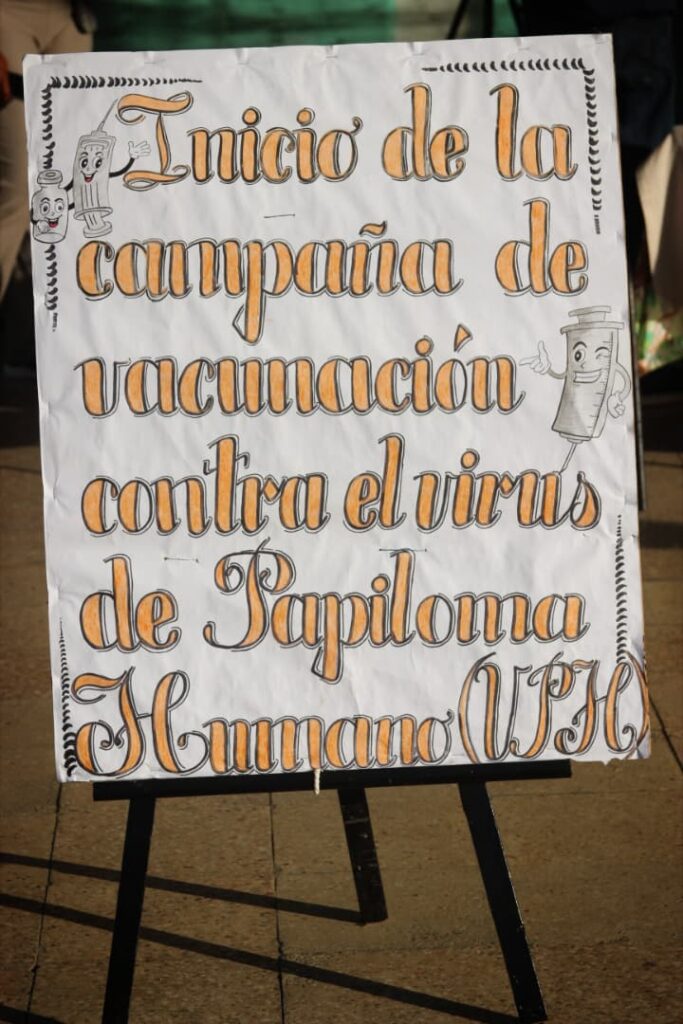 Inicio de la
campaña de
vacunación
contra el virus
de Papiloma
Humano (VPH)